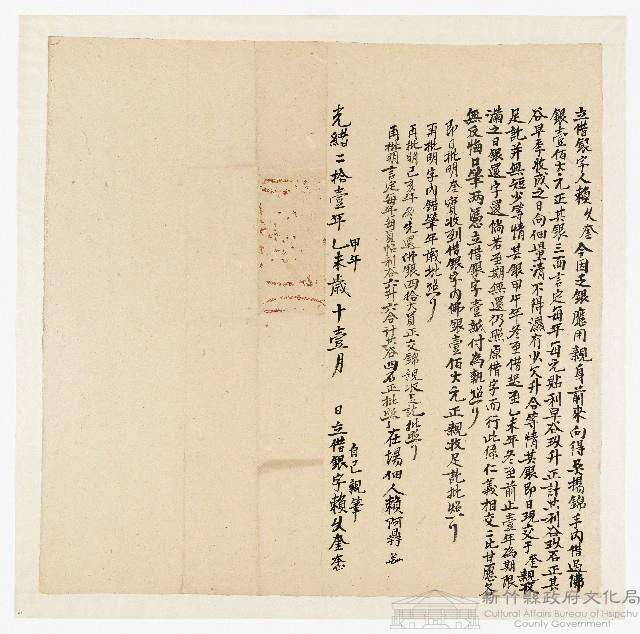 立借銀字人賴火奎今因乏銀應用親身前來向得吳揚錦手內借過佛
銀壹佰大元正其銀三面言定每年每元貼利早谷玖升正計共利谷玖石正其
谷早季收成之日向佃量清不得濕有少欠升合等情其銀即日現交于奎親收
足訖并無短少等情其銀甲午年冬至借起至乙未年冬至前止壹年為期限
滿之日銀還字還倘若至期無還仍照原借字而行此係仁義相交二比甘愿各
無反悔口筆两憑立借銀字壹紙付為執炤
即日批明奎實收到借銀字內佛銀壹佰大元正親收足訖批炤
再批明字內錯筆年歲批炤
再批明己亥年冬先還佛銀四拾大員正交錦親收足訖批炤
再批明言定每年每員帖利谷六升六合計共谷四石正批炤
在場佃人賴阿尋
光緒二拾壹年乙未歲十壹月 日立借銀字賴火奎
甲午
自己親筆
新竹縣政府文化局
Cultural Affairs Bureau of Hsinchu
County Government